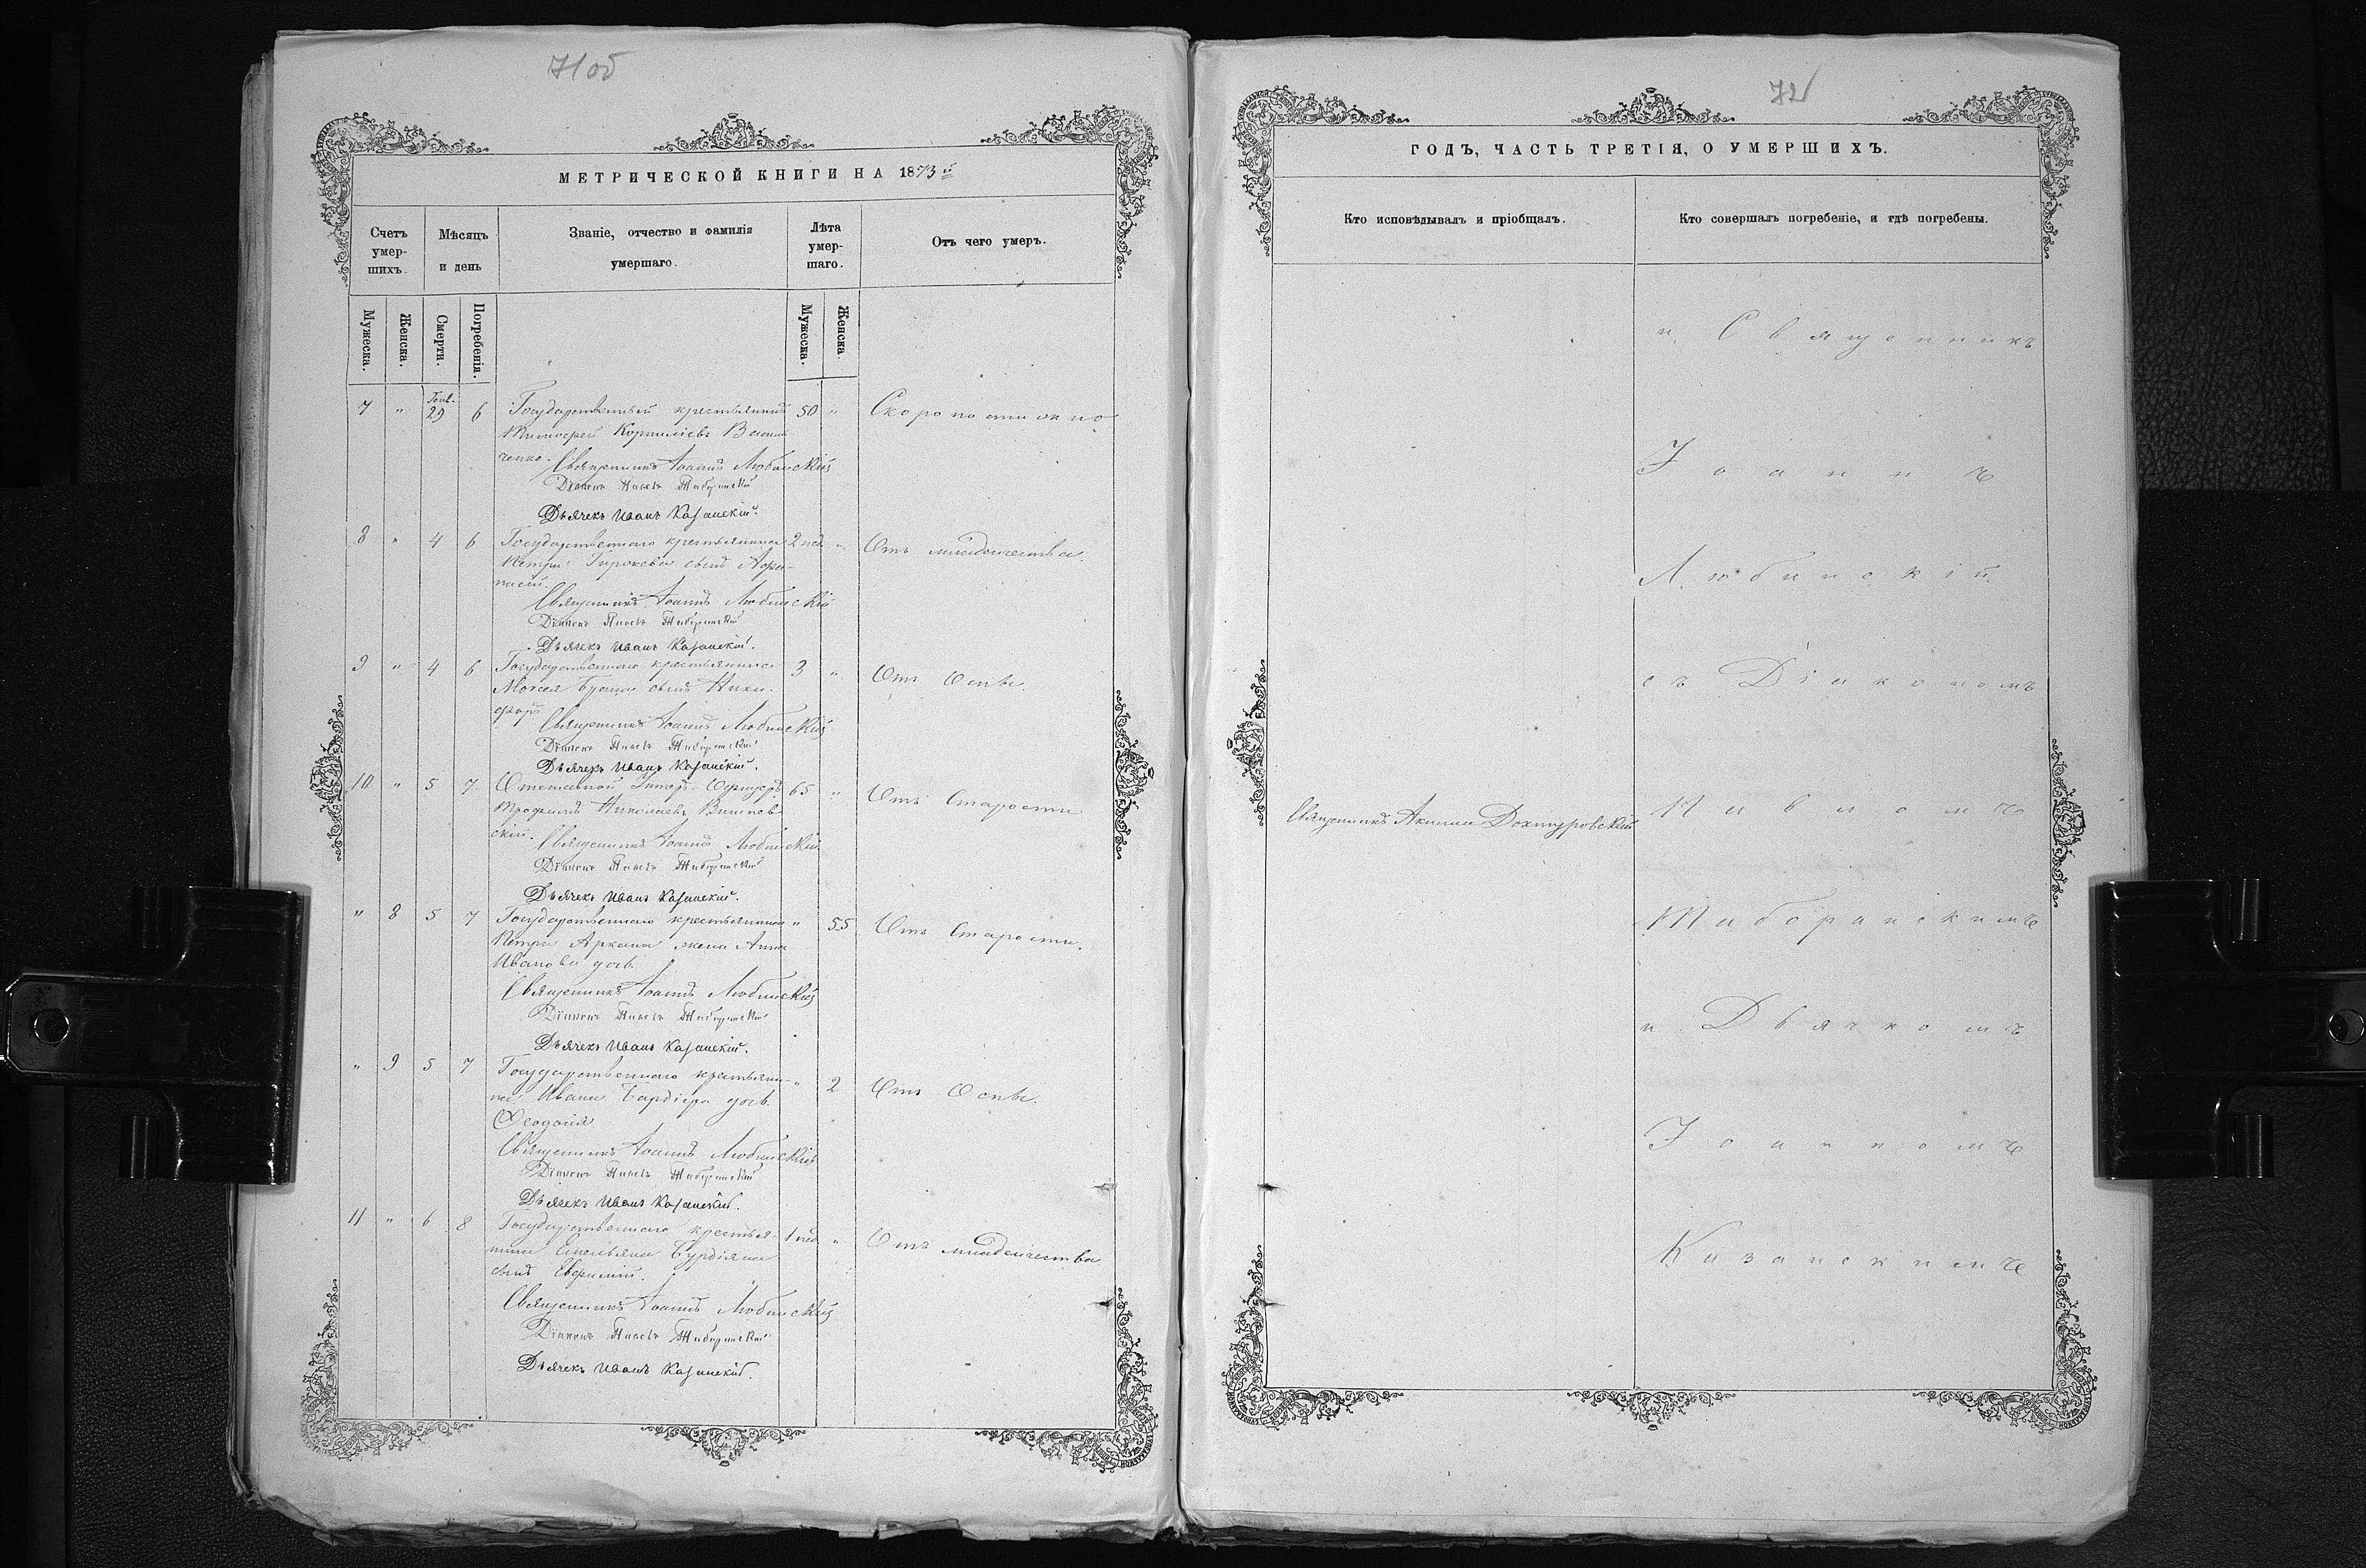 71 об
МЕТРИЧЕСКОЙ КНИГИ НА 1873й
Счетъ умер-шихъ.
Мѣсяцъ и день
Званіе, отчество и фамилія умершаго.
Лѣта умер-шаго.
Отъ чего умеръ.
Мужеска.
Женска.
Смерти.
Погребенія.
Мужеска.
Женска.
7 " Генв. 29 6 Государственный крестьянинъ 50 " Скоропостижно
Тимофей Корниліевъ
ченко.
Священникъ Іоаннъ Любинскій
Діаконъ Павелъ Таборанскій
Дьячекъ Иванъ Казанскій.
8 " 4 6 Государственнаго крестьянина 2 нед. " Отъ младенчества
Петра сынъ Афа-
насій.
Священникъ Іоаннъ Любинскій
Діаконъ Павелъ Таборанскій
Дьячекъ Иванъ Казанскій.
9 " 4 6 Государственнаго крестьянина 3 " Отъ Оспы.
Моисея сынъ Ники-
форъ
Священникъ Іоаннъ Любинскій
Діаконъ Павелъ Таборанскій
Дьячекъ Иванъ Казанскій.
10 " 5 7 Отставной Унтеръ-Офицеръ 65 " Отъ Старости
Трофимъ Николаевъ Вишнев-
скій.
Священникъ Іоаннъ Любинскій
Діаконъ Павелъ Таборанскій
Дьячекъ Иванъ Казанскій.
" 8 5 7 Государственнаго крестьянина " 55 Отъ Старости.
Петра Аркана жена Анна
Иванова дочь.
Священникъ Іоаннъ Любинскій
Діаконъ Павелъ Таборанскій
Дьячекъ Иванъ Казанскій.
" 9 5 7 Государственнаго крестьяни- " 2 Отъ Оспы.
на Ивана Бардіера дочь
Феодосія
Священникъ Іоаннъ Любинскій
Діаконъ Павелъ Таборанскій
Дьячекъ Иванъ Казанскій.
11 " 6 8 Государственнаго крестья- 1 нед. " Отъ младенчества
нина Емельяна Бурдіяна
сынъ Евфимій.
Священникъ Іоаннъ Любинскій
Діаконъ Павелъ Таборанскій
Дьячекъ Иванъ Казанскій.
72
ГОДЪ, ЧАСТЬ ТРЕТІЯ, О УМЕРШИХЪ.
Кто исповѣдывалъ и пріобщалъ.
Кто совершалъ погребеніе, и гдѣ погребены.
и Священникъ
Іоаннъ
Любинскій
съ Діакономъ
Священникъ Акилин Дохтуровскій
Павломъ
Таборанскимъ
и Дьячкомъ
Іоанномъ
Казанскимъ